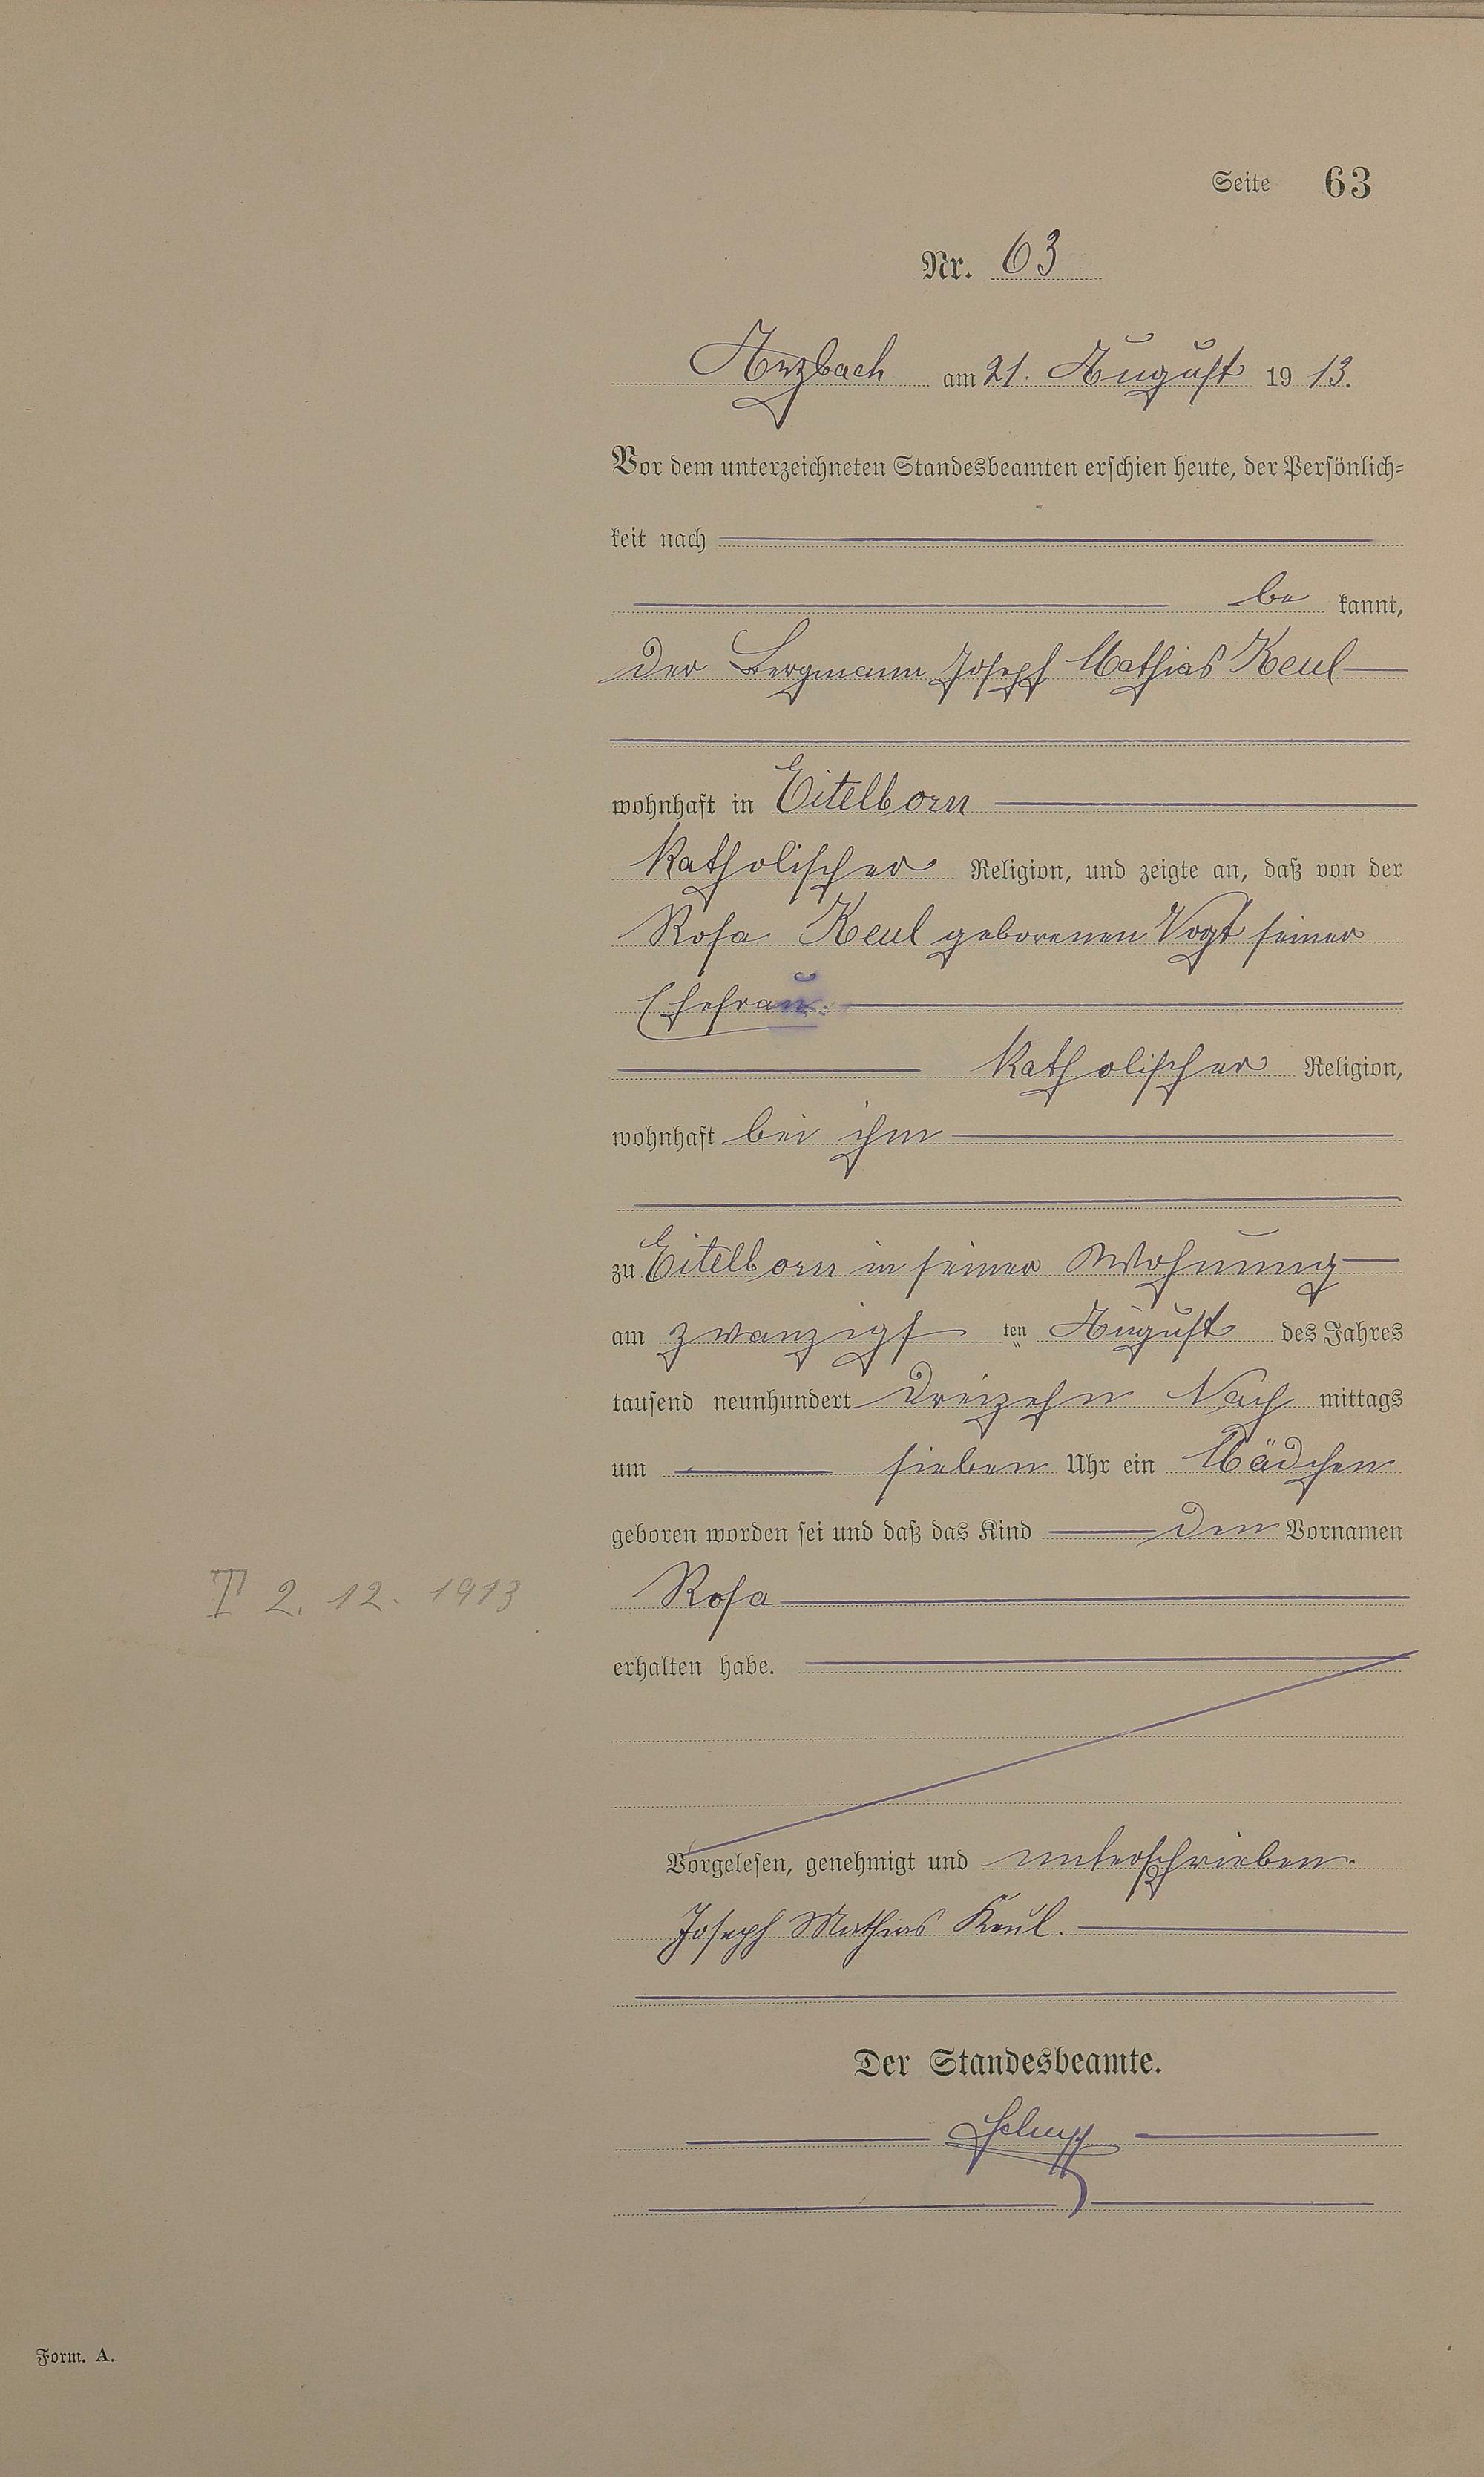 Seite 63
Nr. 63
Arzbach am 21. August 1913.
Vor dem unterzeichneten Standesbeamten erschien heute, der Persönlich-
keit nach
be kannt,
der Bergmann Joseph Mathias Keul
wohnhaft in Eitelborn
katholischer Religion, und zeigte an, daß von der
Rosa Keul geborenen Vogt seiner
Ehefrau.
katholischer Religion,
wohnhaft bei ihm
zu Eitelborn in seiner Wohnung
am zwanzigsten August des Jahres
tausend neunhundert dreizehn Nach mittags
um sieben Uhr ein Mädchen
geboren worden sei und daß das Kind den Vornamen
T 2. 12. 1913 Rosa
erhalten habe.
Vorgelesen, genehmigt und unterschrieben.
Joseph Mathias Keul.
Der Standesbeamte.
Form. A.